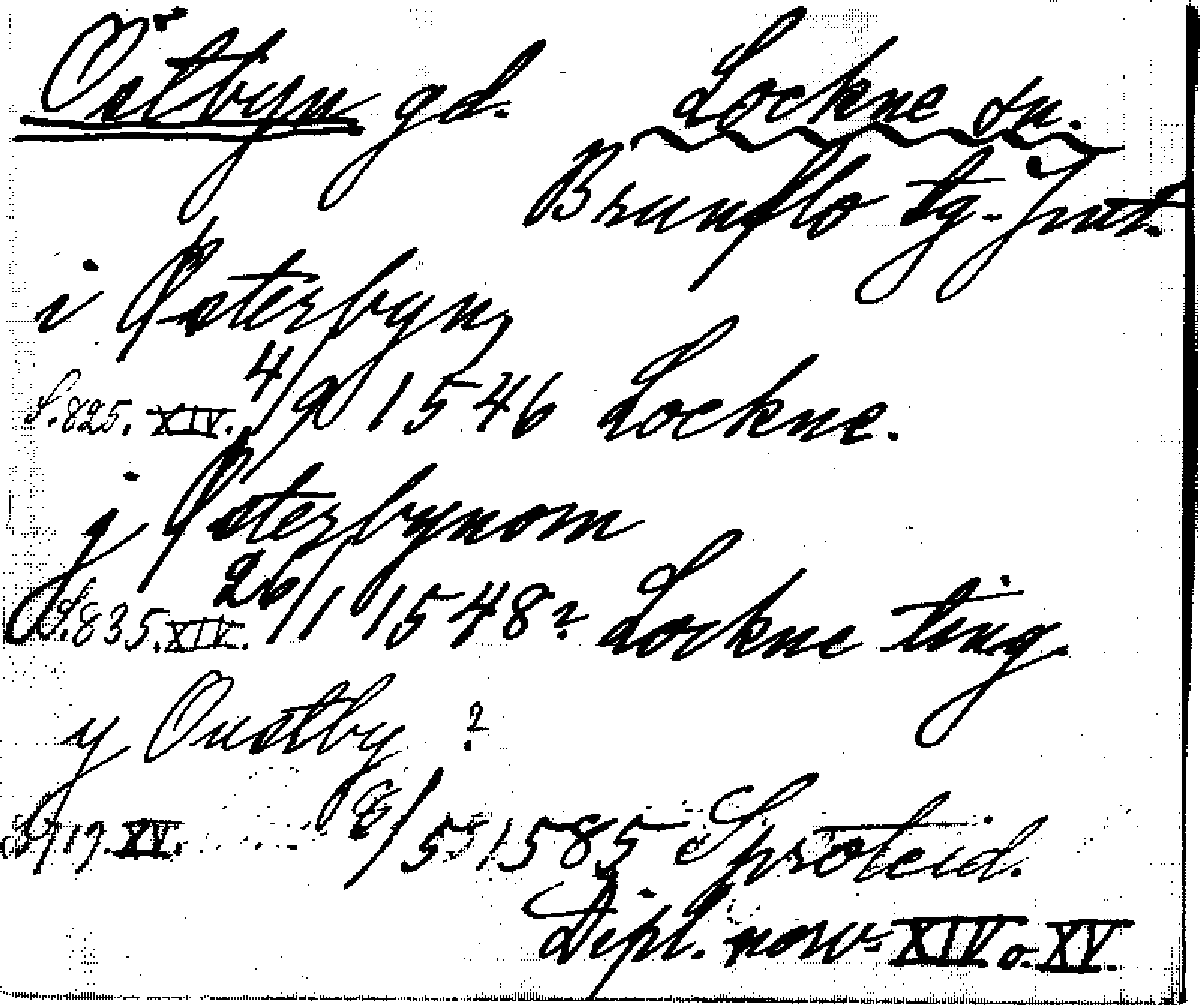 Östbyn gd. Lockne sn.
Brunflo tg. Jmt.
i Østerbyn
S. 825. XIV. 4/9 1546 Lockne.
j Østerbynom
S. 835. XIV. 26/1 1548? Lockne ting.
y Oustby ?
XV. 1585 Sproteid.
Dipl. norv. XIV o. XV.